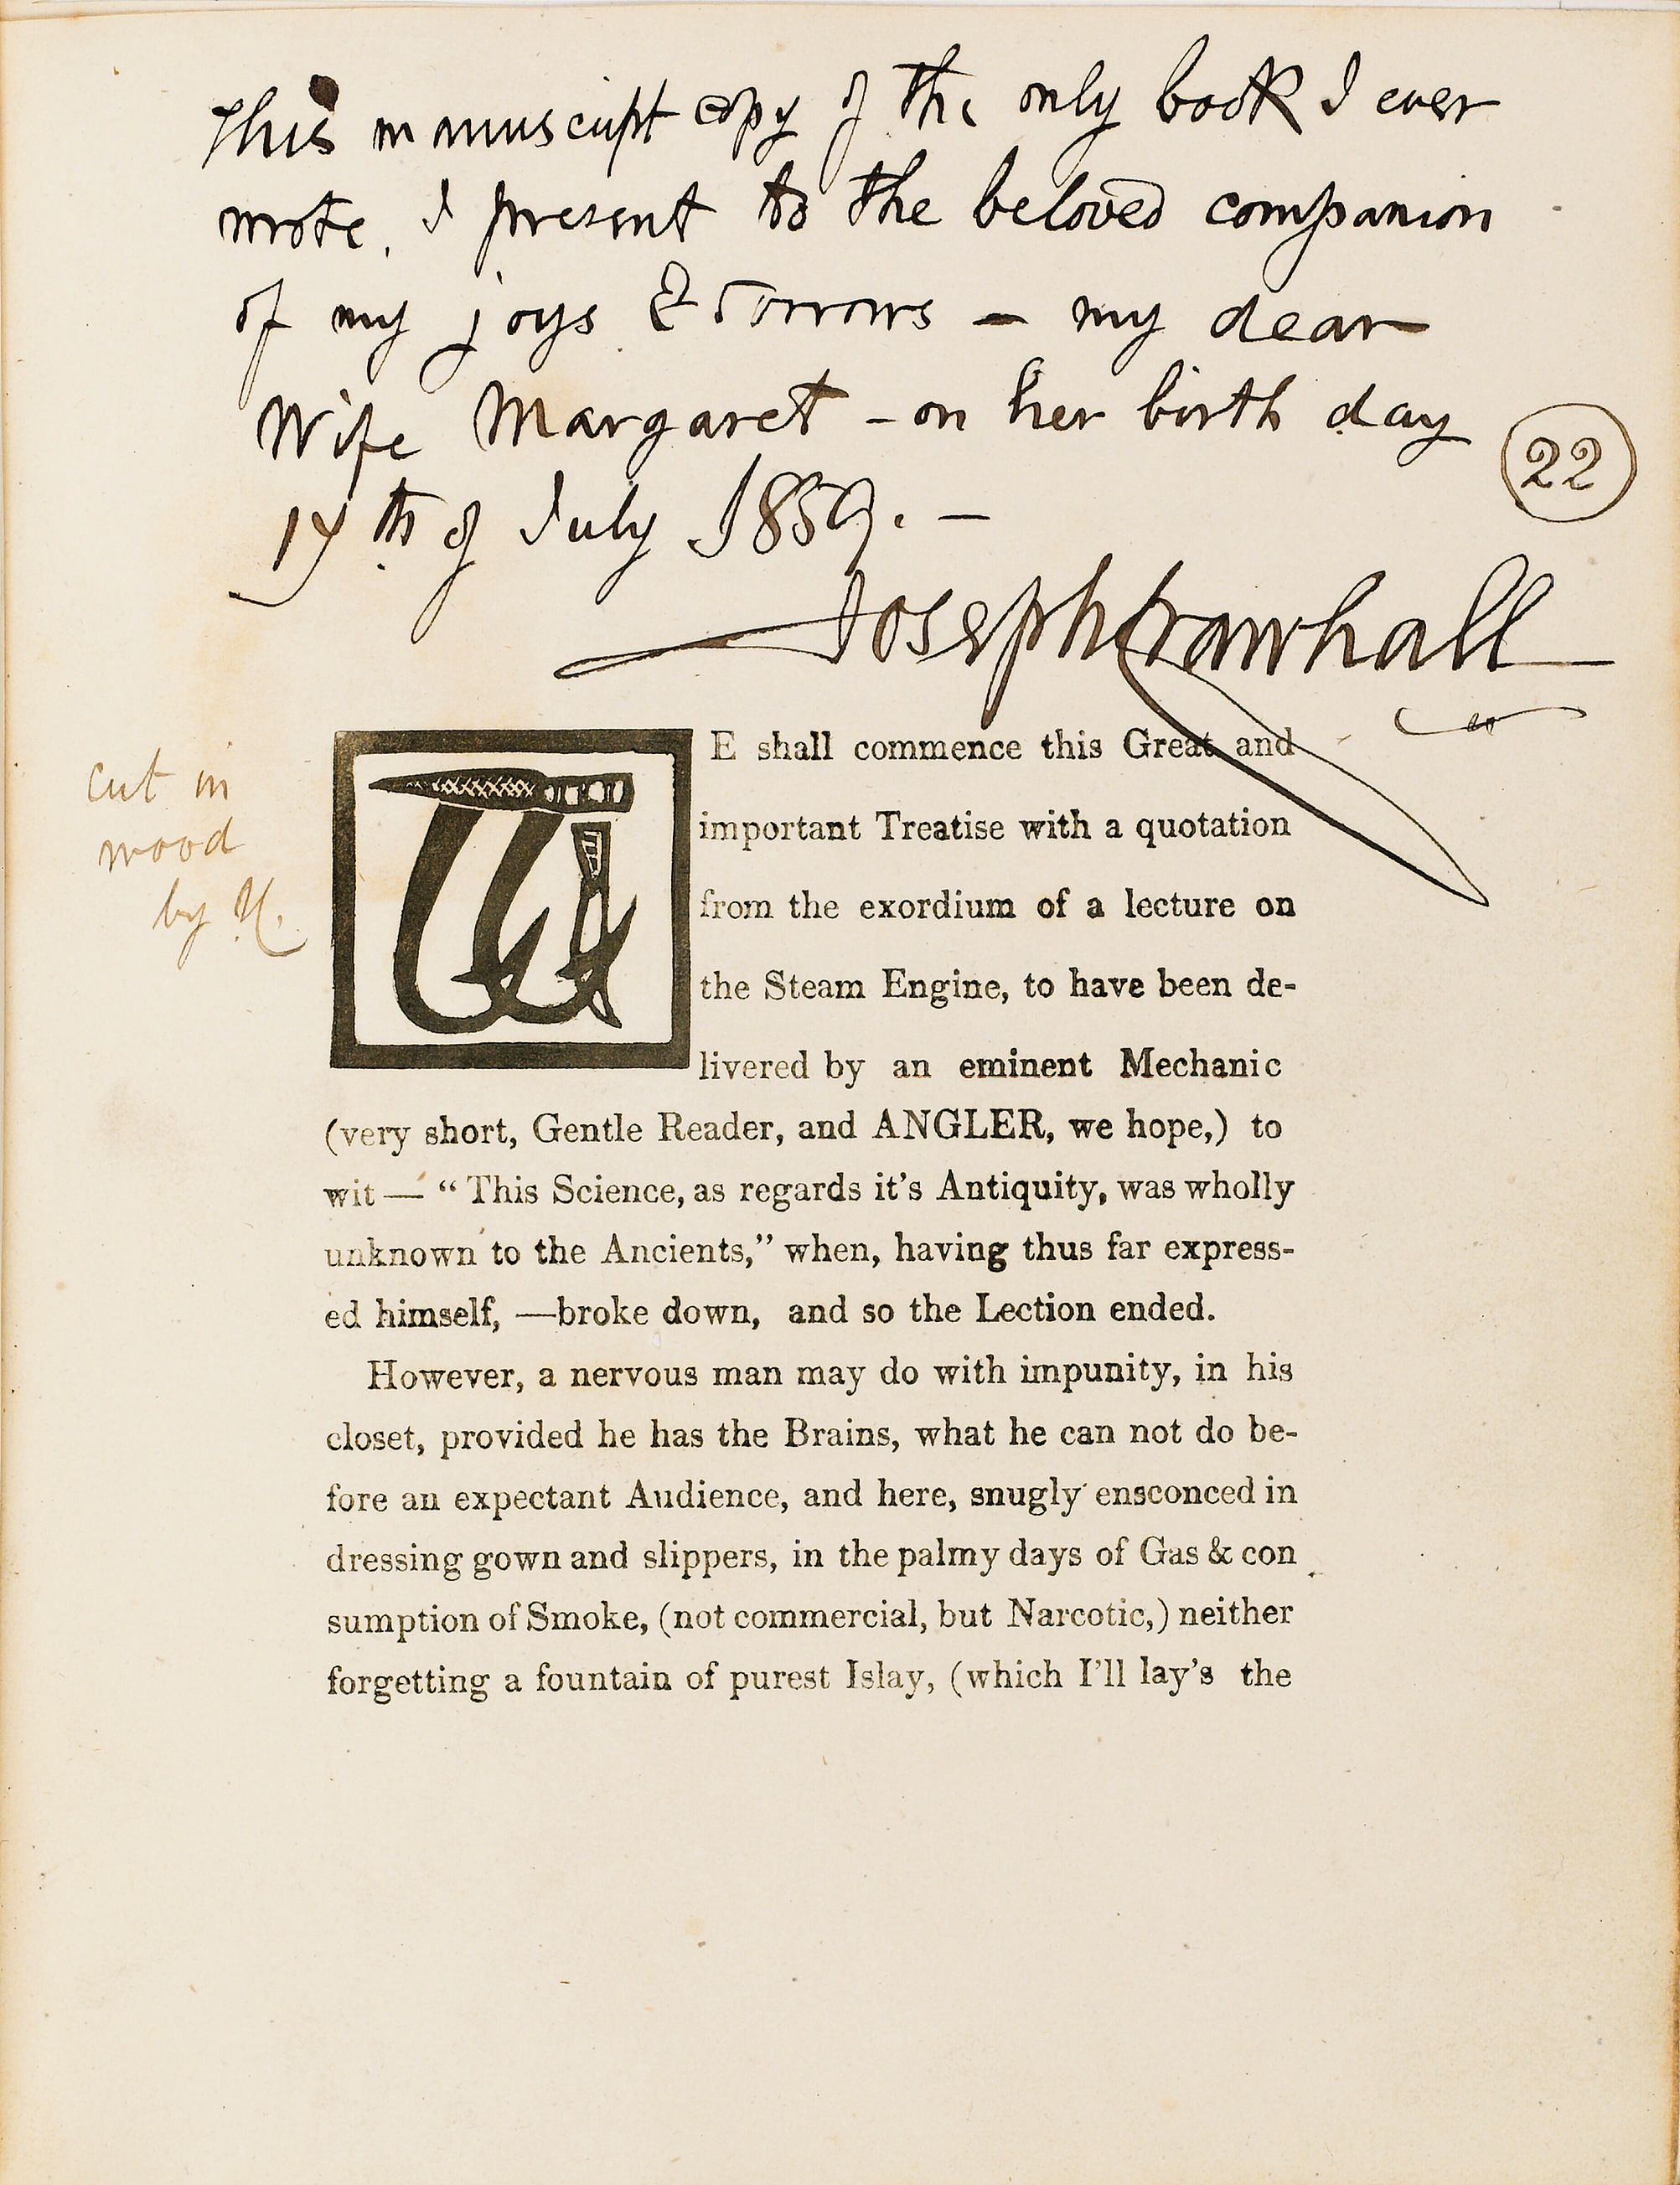 This manuscript copy of the only book I ever
wrote, I present to the beloved companion
of my joys & sorrows — my dear
Wife Margaret - on her birth day
17th of July 1859. —
Joseph Crawhall
22
cut in
wood
by
WE shall commence this Great and
important Treatise with a quotation
from the exordium of a lecture on
the Steam Engine, to have been de-
livered by an eminent Mechanic
(very short, Gentle Reader, and ANGLER, we hope,) to
wit — “ This Science, as regards it's Antiquity, was wholly
unknown to the Ancients,” when, having thus far express-
ed himself, —broke down, and so the Lection ended.
However, a nervous man may do with impunity, in his
closet, provided he has the Brains, what he can not do be-
fore an expectant Audience, and here, snugly ensconced in
dressing gown and slippers, in the palmy days of Gas & con
sumption of Smoke, (not commercial, but Narcotic,) neither
forgetting a fountain of purest Islay, (which I'll lay's the